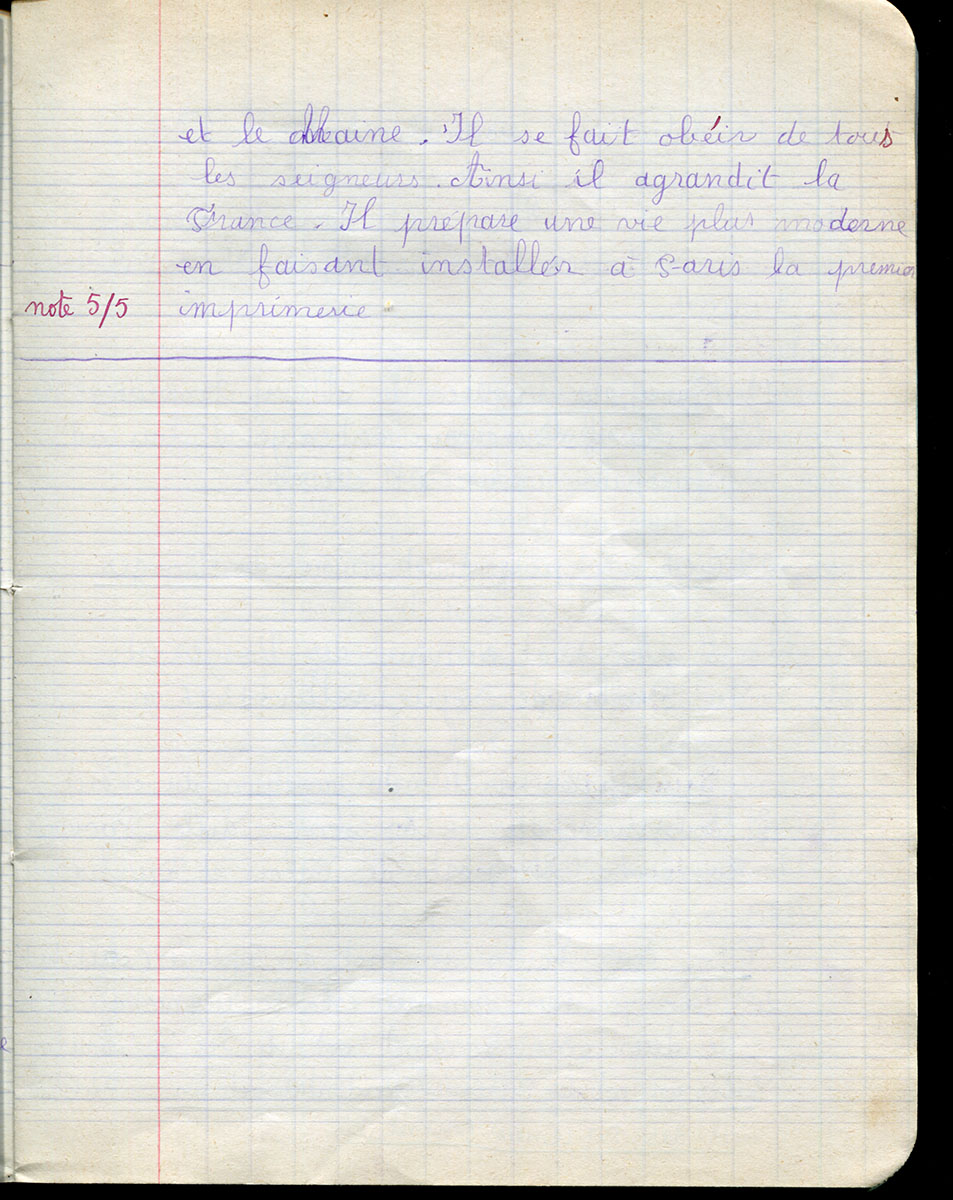 et le Maine. Il se fait obéir de tous
les seigneurs. Ainsi il agrandit la
France. Il prépare une vie plus moderne
en faisant installer à Paris la premier
note 5/5 imprimerie